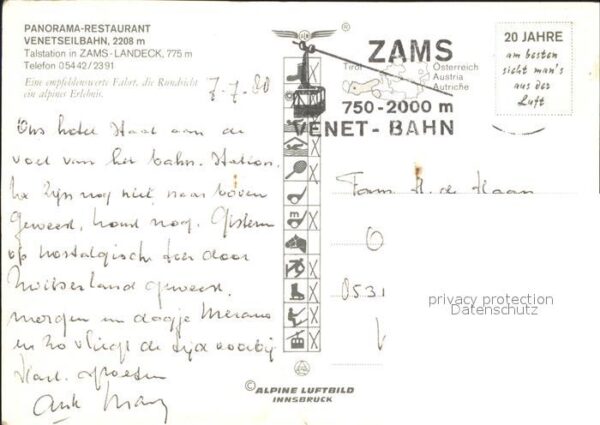 PANORAMA-RESTAURANT
VENETSEILBAHN, 2208 m
Talstation in ZAMS-LANDECK, 775 m
Telefon 05442/2391
Eine empfehlenswerte Fahrt, die Rundsicht
ein alpines Erlebnis.
7-7-80
ZAMS
Tirol
Österreich
Austria
Autriche
750-2000 m
VENET-BAHN
20 JAHRE
am besten
sieht man's
aus der
Luft
Ons hotel staat aan de
voet van het bahn. Station.
We zijn nog niet naar boven
geweest, komt nog. Gisteren
op nostalgische toer door
Zwitserland geweest.
morgen een dagje Merano
en zo vliegt de tijd voorbij
Hart. groeten
Fam. H. de Haan
0531
privacy protection
Datenschutz
© ALPINE LUFTBILD
INNSBRUCK